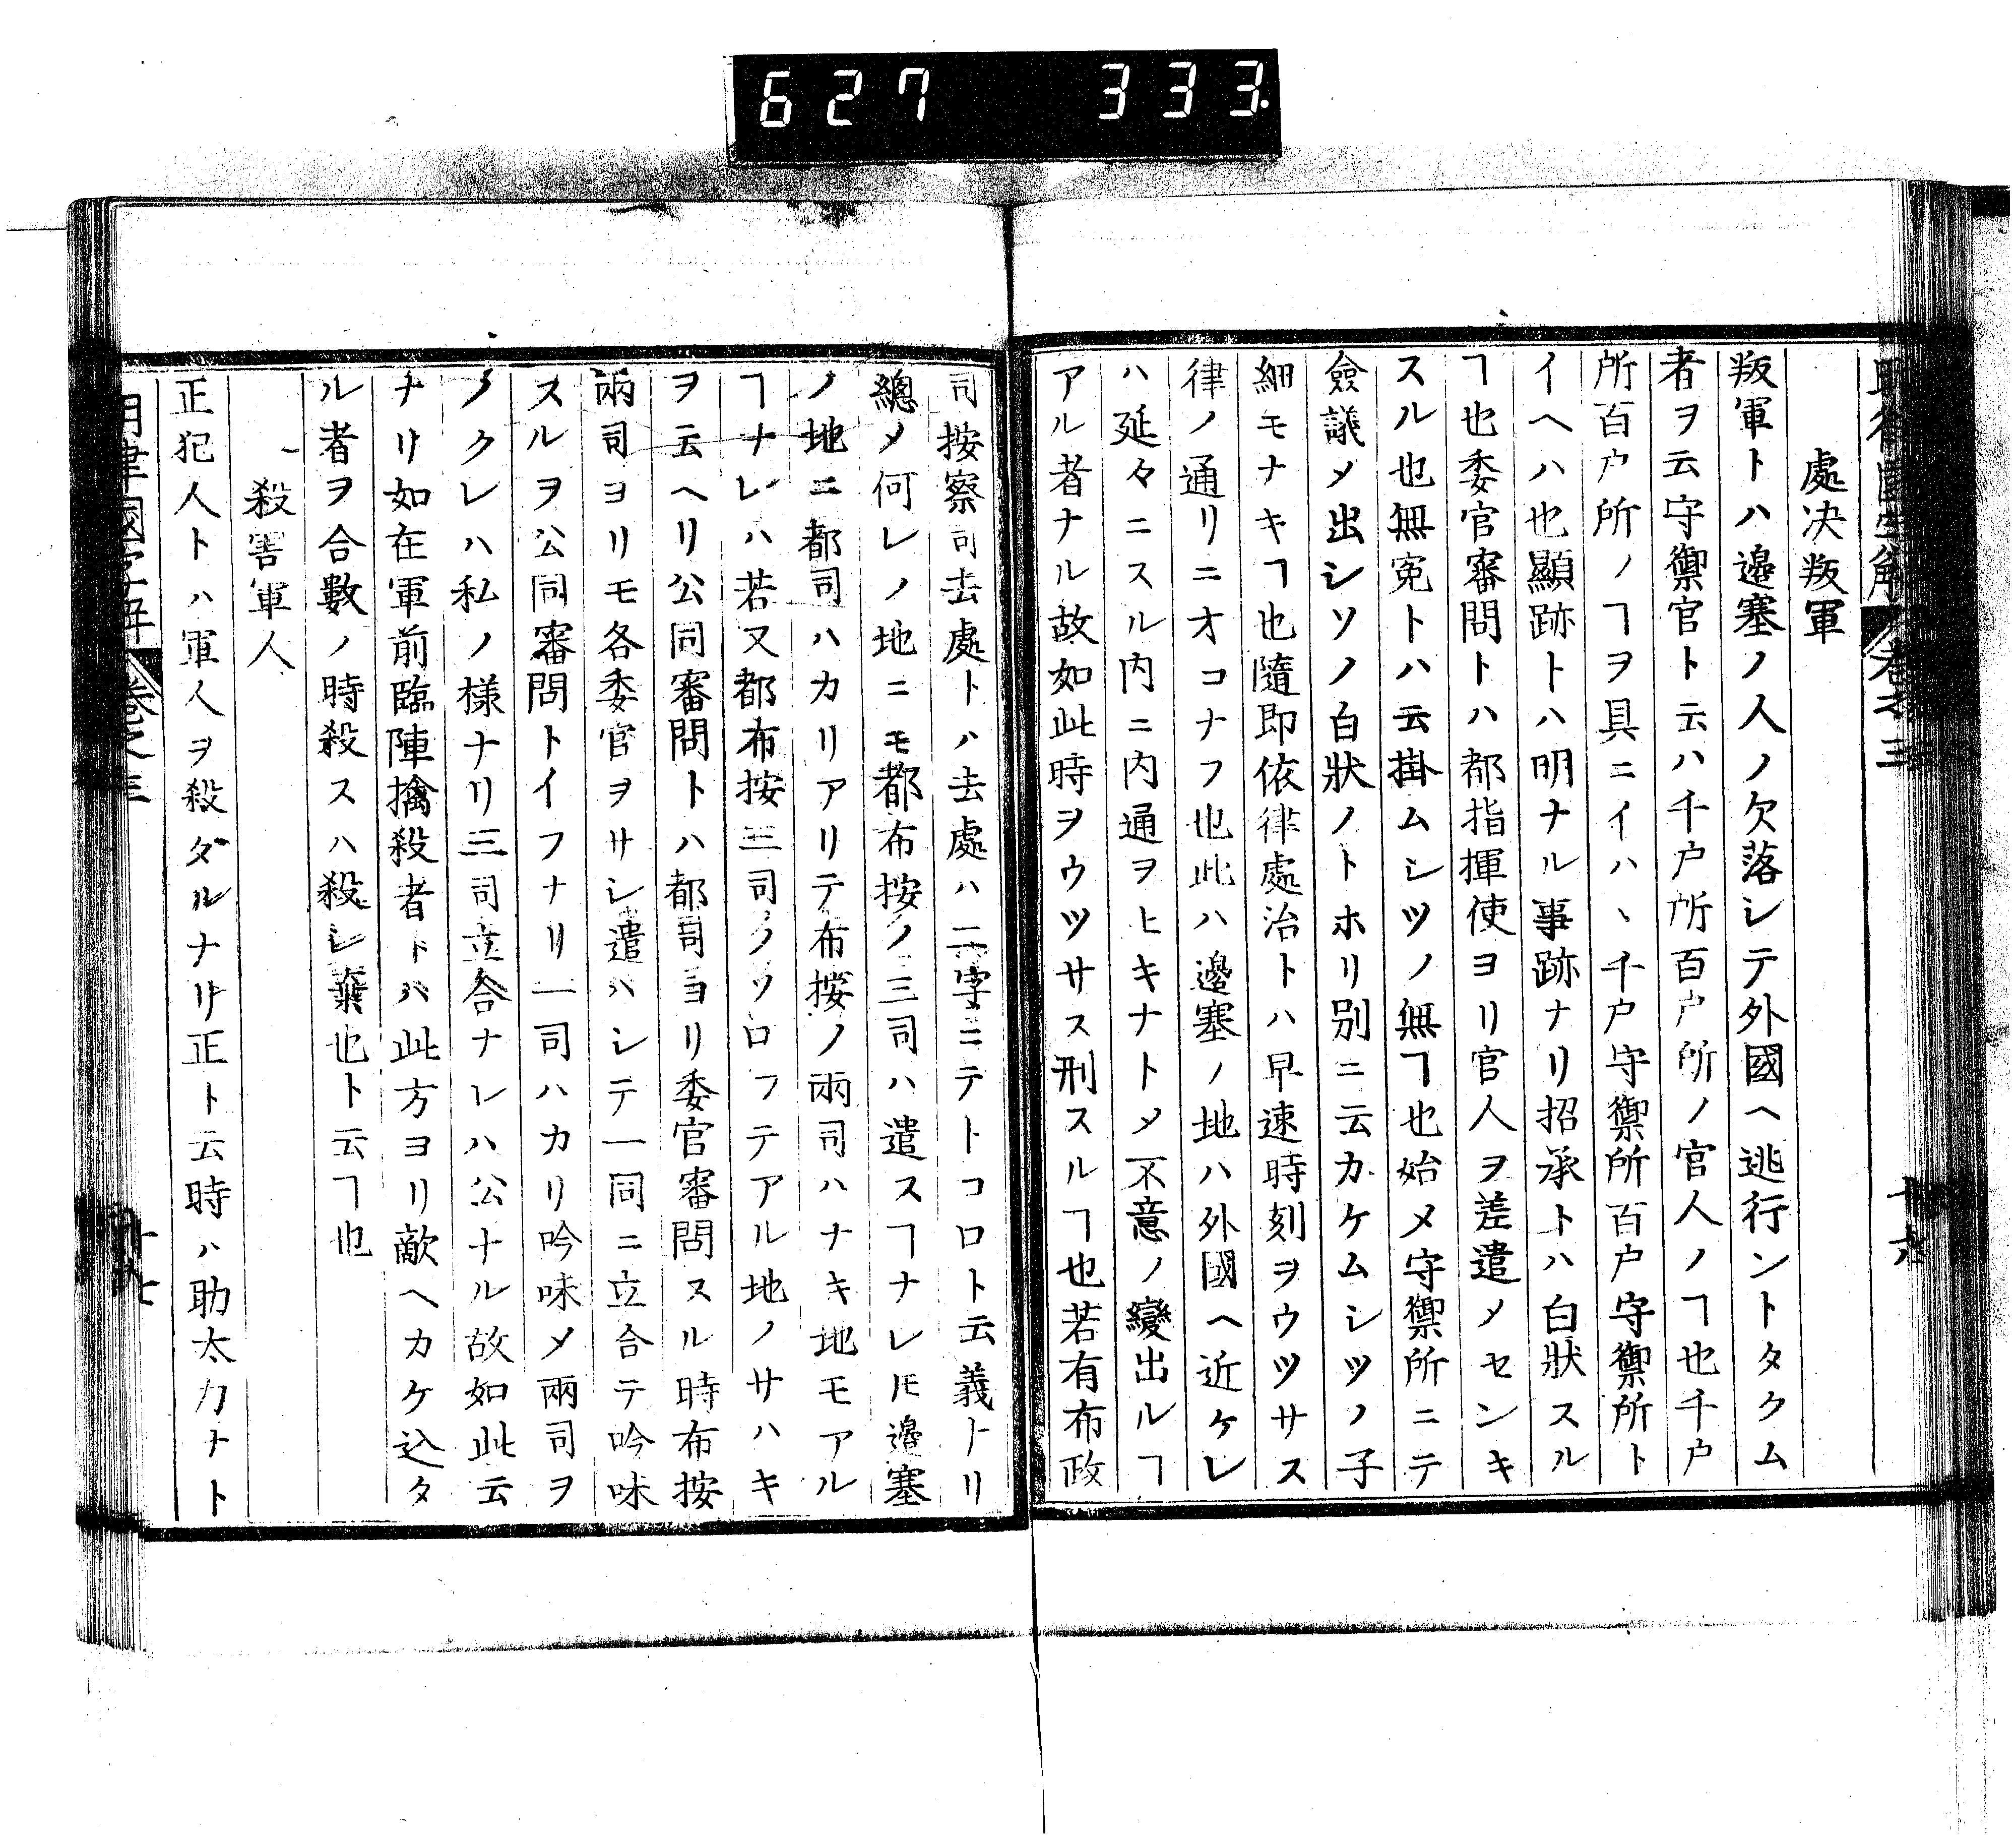 627 333.
處决叛軍
叛軍トハ邉塞ノ人ノ欠落シテ外國ヘ逃行ントタクム
者ヲ云守禦官ト云ハ千户所百户所ノ官人ノヿ也千户
所百户所ノヿヲ具ニイハヽ千户守禦所百户守禦所ト
イヘハ也顯跡トハ明ナル事跡ナリ招承トハ白狀スル
ヿ也委官審問トハ都指揮使ヨリ官人ヲ差遣メセンキ
スル也無寃トハ云掛ムシツノ無ヿ也始メ守禦所ニテ
僉議メ出シソノ白狀ノトホリ別ニ云カケムシツノ子
細モナキヿ也隨即依律處治トハ早速時刻ヲウツサス
律ノ通リニオコナフ也此ハ邊塞ノ地ハ外國ヘ近ケレ
ハ延々ニスル内ニ内通ヲヒキナトメ不意ノ變出ルヿ
アル者ナル故如此時ヲウツサス刑スルヿ也若有布政
司按察司去處トハ去處ハ二字ニテトコロト云義トリ
總メ何レノ地ニモ都布按ノ三司ハ遣スヿナレ𪜈邉塞
ノ地ニ都司ハカリアリテ布按ノ兩司ハナキ地モアル
ヿナレハ若又都布按三司ノソロフテアル地ノサハキ
ヲ云ヘリ公同審問トハ都司ヨリ委官審問スル時布按
兩司ヨリモ各委官ヲサシ遣ハシテ一同ニ立合テ吟味
スルヲ公同審問トイフナリ一司ハカリ吟味メ兩司ヲ
ノクレハ私ノ様ナリ三司立合ナレハ公ナル故如此云
ナリ如在軍前臨陣擒殺者トハ此方ヨリ敵ヘカケ込タ
ル者ヲ合數ノ時殺スハ殺シ棄也ト云ヿ也
殺害軍人
正犯人トハ軍人ヲ殺タルナリ正ト云時ハ助太刀ナト
明律國字解 卷之三